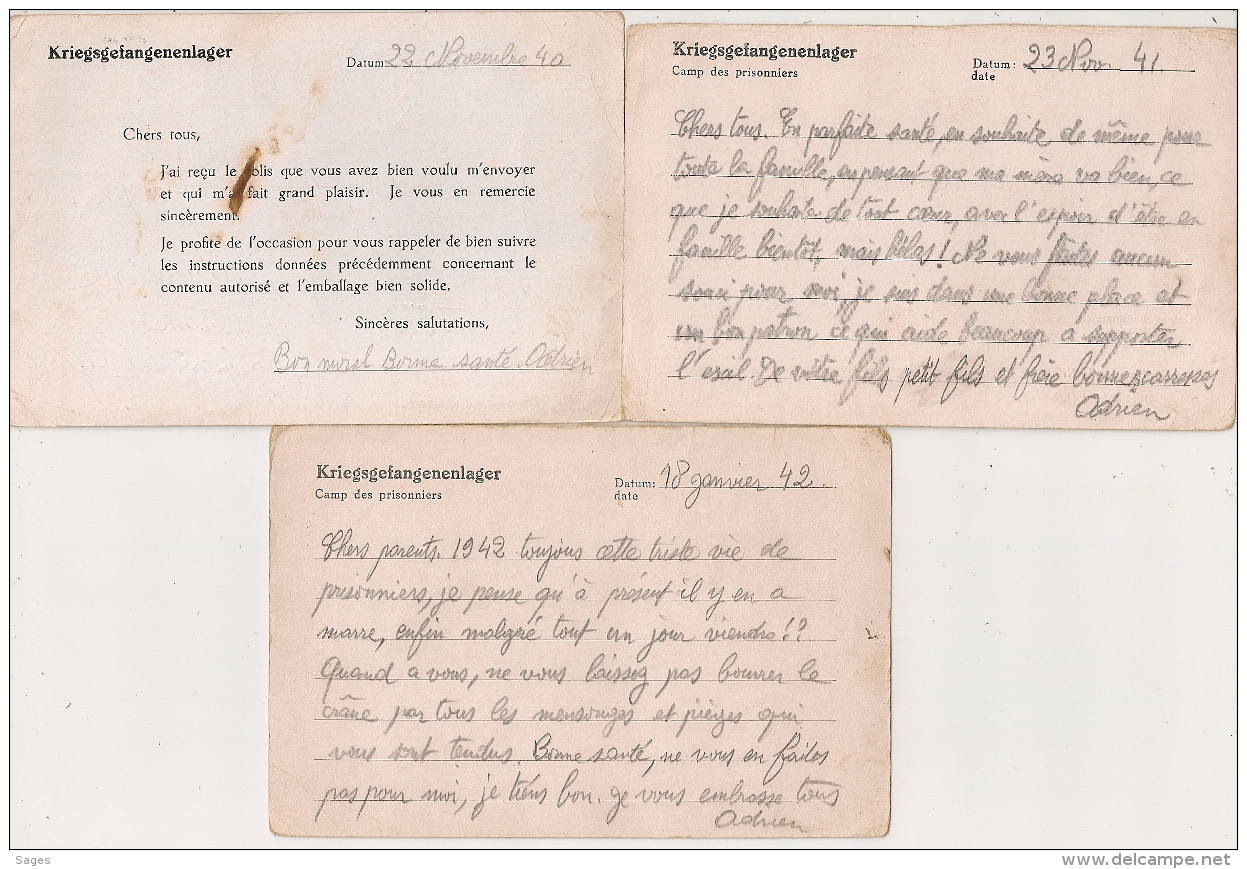 Kriegsgefangenenlager
Datum 22 Novembre 40
Chers tous,
J'ai reçu le colis que vous avez bien voulu m'envoyer
et qui m'a fait grand plaisir. Je vous en remercie
sincèrement.
Je profite de l'occasion pour vous rappeler de bien suivre
les instructions données précédemment concernant le
contenu autorisé et l'emballage bien solide.
Sincères salutations,
Bon moral Bonne santé. Adrien
Kriegsgefangenenlager
Camp des prisonniers
Datum: 23 Nov. 41.
date
Chers tous. En parfaite santé, en souhaite de même pour
toute la famille, en pensant que ma mère va bien, ce
que je souhaite de tout cœur, avec l'espoir d'être en
famille bientôt, mais hélas! Ne vous faites aucun
souci pour moi, je suis dans une bonne place et
un bon patron ce qui aide beaucoup a supporter
l'exil. De vôtre fils petit fils et frère bonnes caresses
Adrien
Kriegsgefangenenlager
Camp des prisonniers
Datum: 18 janvier 42.
date
Chers parents. 1942 toujours cette triste vie de
prisonniers, je pense qu'à présent il y en a
marre, enfin malgré tout un jour viendra!?
Quand a vous, ne vous laissez pas bourrer le
crâne par tous les mensonges et pièges qui
vous sont tendus. Bonne santé, ne vous en faites
pas pour moi, je tiens bon. Je vous embrasse tous
Adrien
Sages
www.delcampe.net